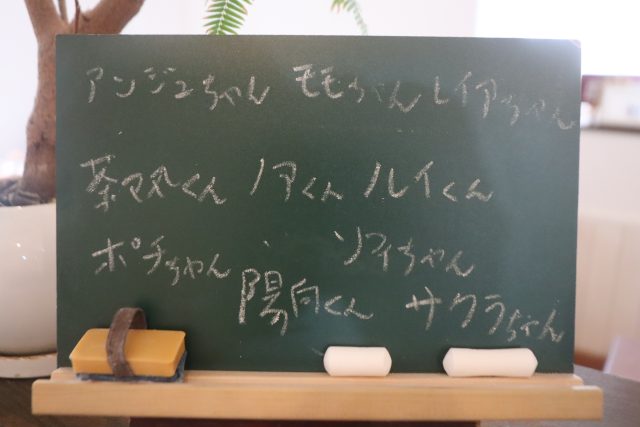 アンジュちゃん モモちゃん レイアちゃん
茶々丸くん ノアくん ルイくん
ポチちゃん ソフィちゃん
陽向くん サクラちゃん